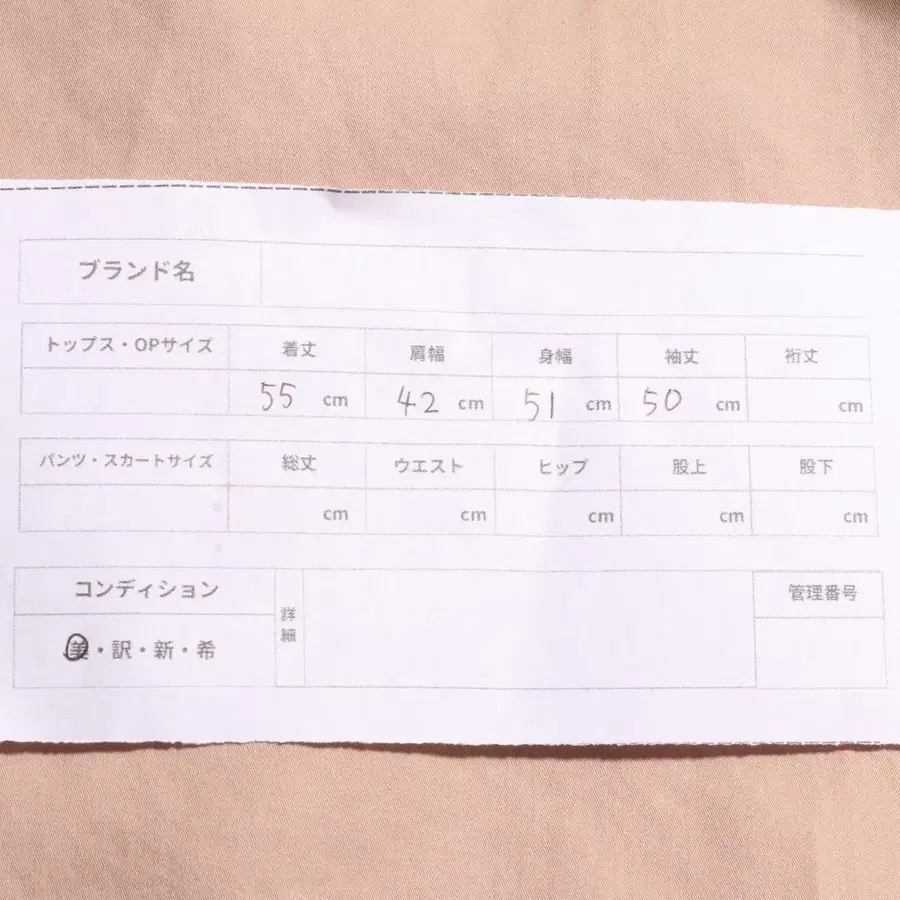 ブランド名
トップス・OPサイズ 着丈 肩幅 身幅 袖丈 裄丈
55 cm 42 cm 51 cm 50 cm cm
パンツ・スカートサイズ 総丈 ウエスト ヒップ 股上 股下
cm cm cm cm cm
コンディション 詳細 管理番号
美・訳・新・希